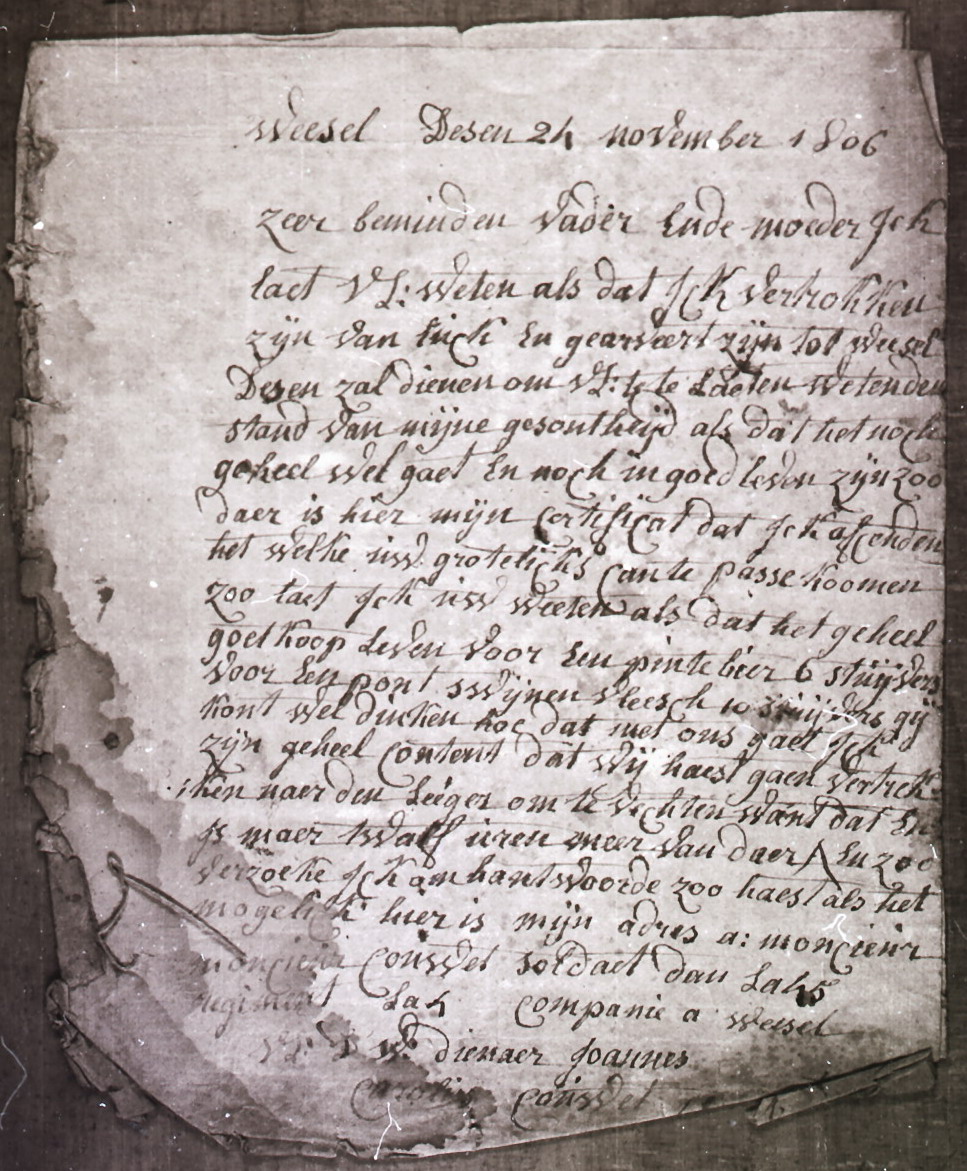 Weesel Desen 24 november 1806
zeer beminden vader Ende moeder Jck
laet VL: weten als dat Jck vertrokken
zijn van luck En gearveert zijn tot weesel
Desen zal dienen om VL: te Laeten weten den
stand van mijne gesontheijd als dat het noch
geheel wel gaet En noch in goed leven zijn zoo
daer is hier mijn Certificat dat Jck afsenden
het welke uw grotelicks can te passe koomen
zoo laet Jck uw weeten als dat het geheel
goet koop Leven voor Een pinte bier 6 stuijvers
voor Een pont swijnen vleesch 10 stuijvers gij
kont wel dincken hoe dat met ons gaet Jck
zijn geheel content dat wij haest gaen vertrek
ken naer den Leeger om te vechten want dat En
Js maer twalf uren meer van daer En zoo
verzoeke Jck om hantwoorde zoo haest als het
mogelick hier is mijn adres a: moncieur
moncieur Couwet soldaet dan La 45
regiment La 4 Companie a weesel
VL: D W: dienaer Joannes
Carolus Couwet